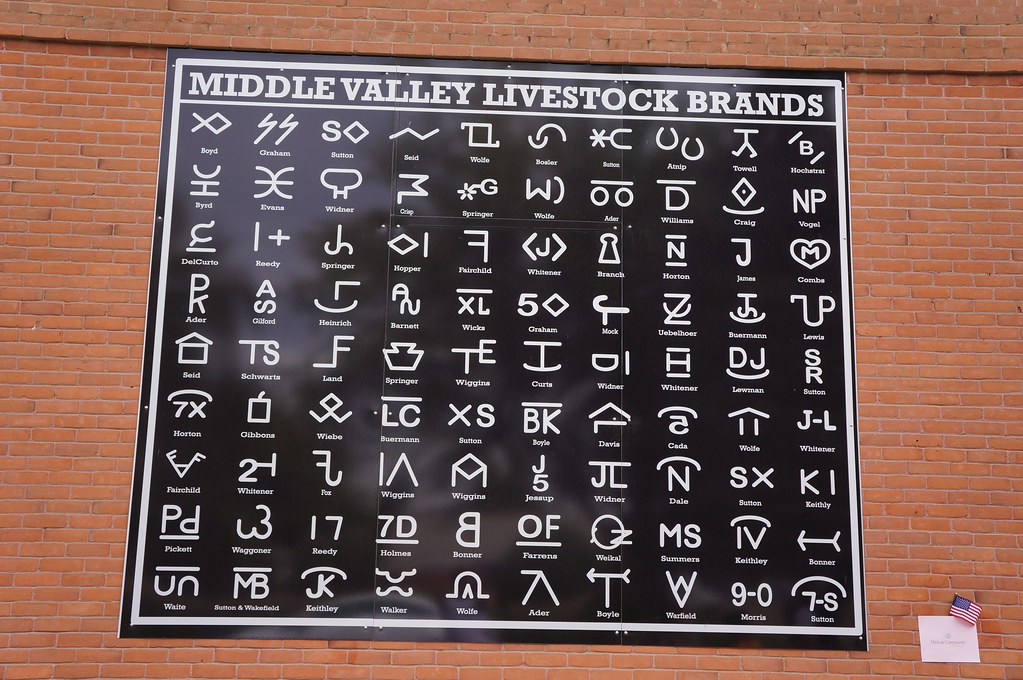 MIDDLE VALLEY LIVESTOCK BRANDS
S S B
Boyd Graham Sutton Seid Wolfe Bosler Sutton Atnip Towell Hochstrat
G W) D NP
Byrd Evans Widner Crisp Springer Wolfe Ader Williams Craig Vogel
I+ J N J M
DelCurto Reedy Springer Hopper Fairchild Whitener Branch Horton James Combs
PR AS XL 5 Z
Ader Gilford Heinrich Barnett Wicks Graham Mock Uebelhoer Buermann Lewis
TS F TE DJ SR
Seid Schwarts Land Springer Wiggins Curts Widner Whitener Lewman Sutton
7X LC XS BK a J-L
Horton Gibbons Wiebe Buermann Sutton Boyle Davis Cada Wolfe Whitener
J5 N SX KI
Fairchild Whitener Fox Wiggins Wiggins Jessup Widner Dale Sutton Keithly
Pd 17 7D B OF MS IV
Pickett Waggoner Reedy Holmes Bonner Farrens Weikal Summers Keithley Bonner
un MB JK W 9-0 7-S
Waite Sutton & Wakefield Keithley Walker Wolfe Ader Boyle Warfield Morris Sutton